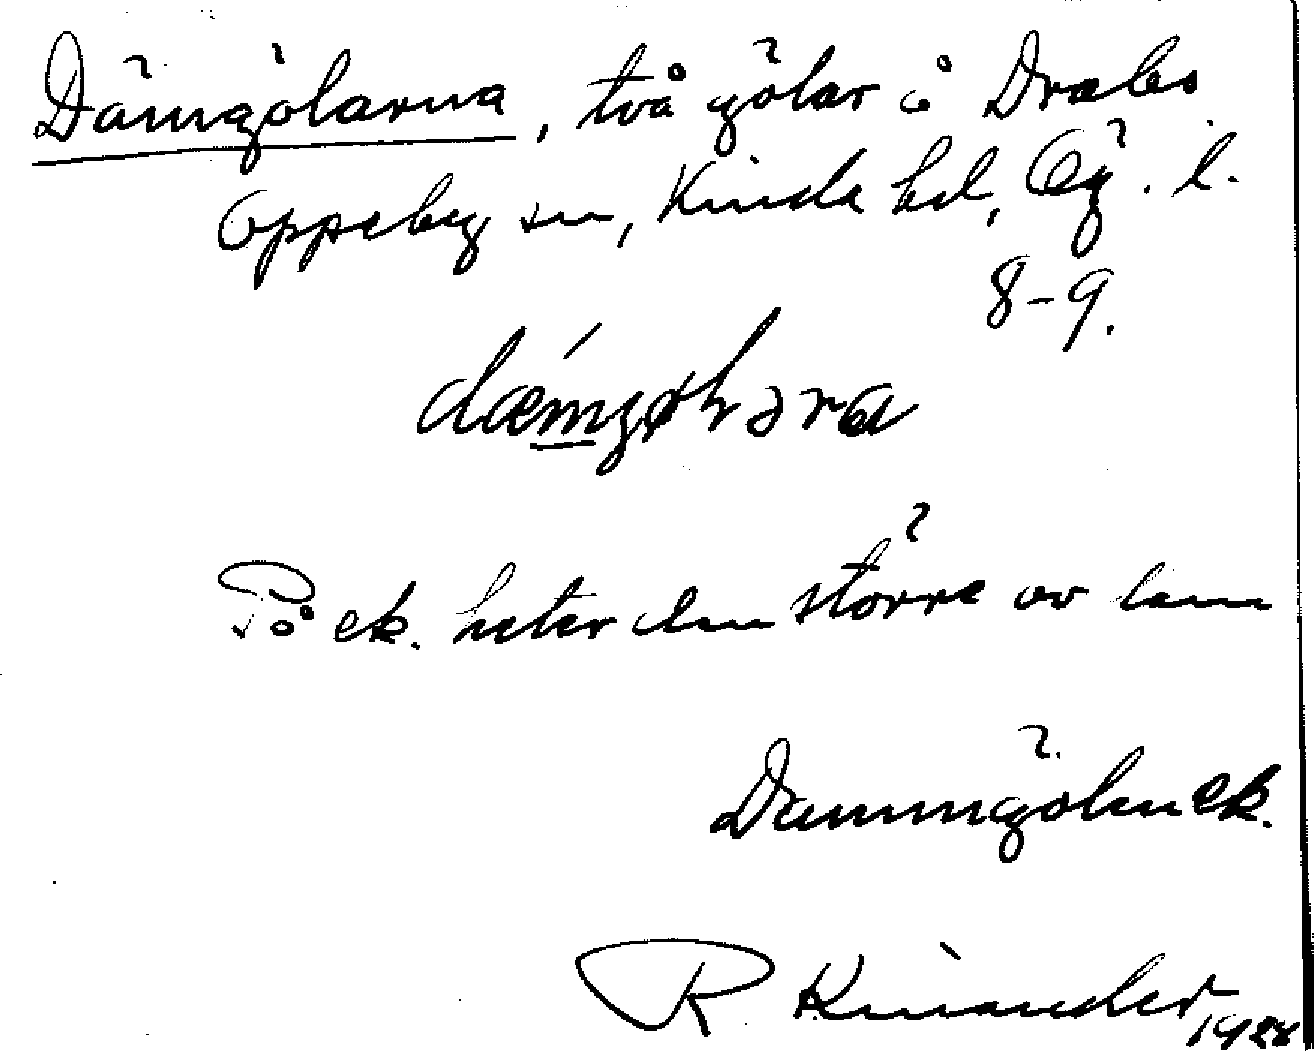 Dämgölarna, två gölar å Drabo
Oppeby sn, Kinda hd, Ög. l.
8-9.
På ek. heter den större av dem
Dammgölen ek.
R Kinander 1928